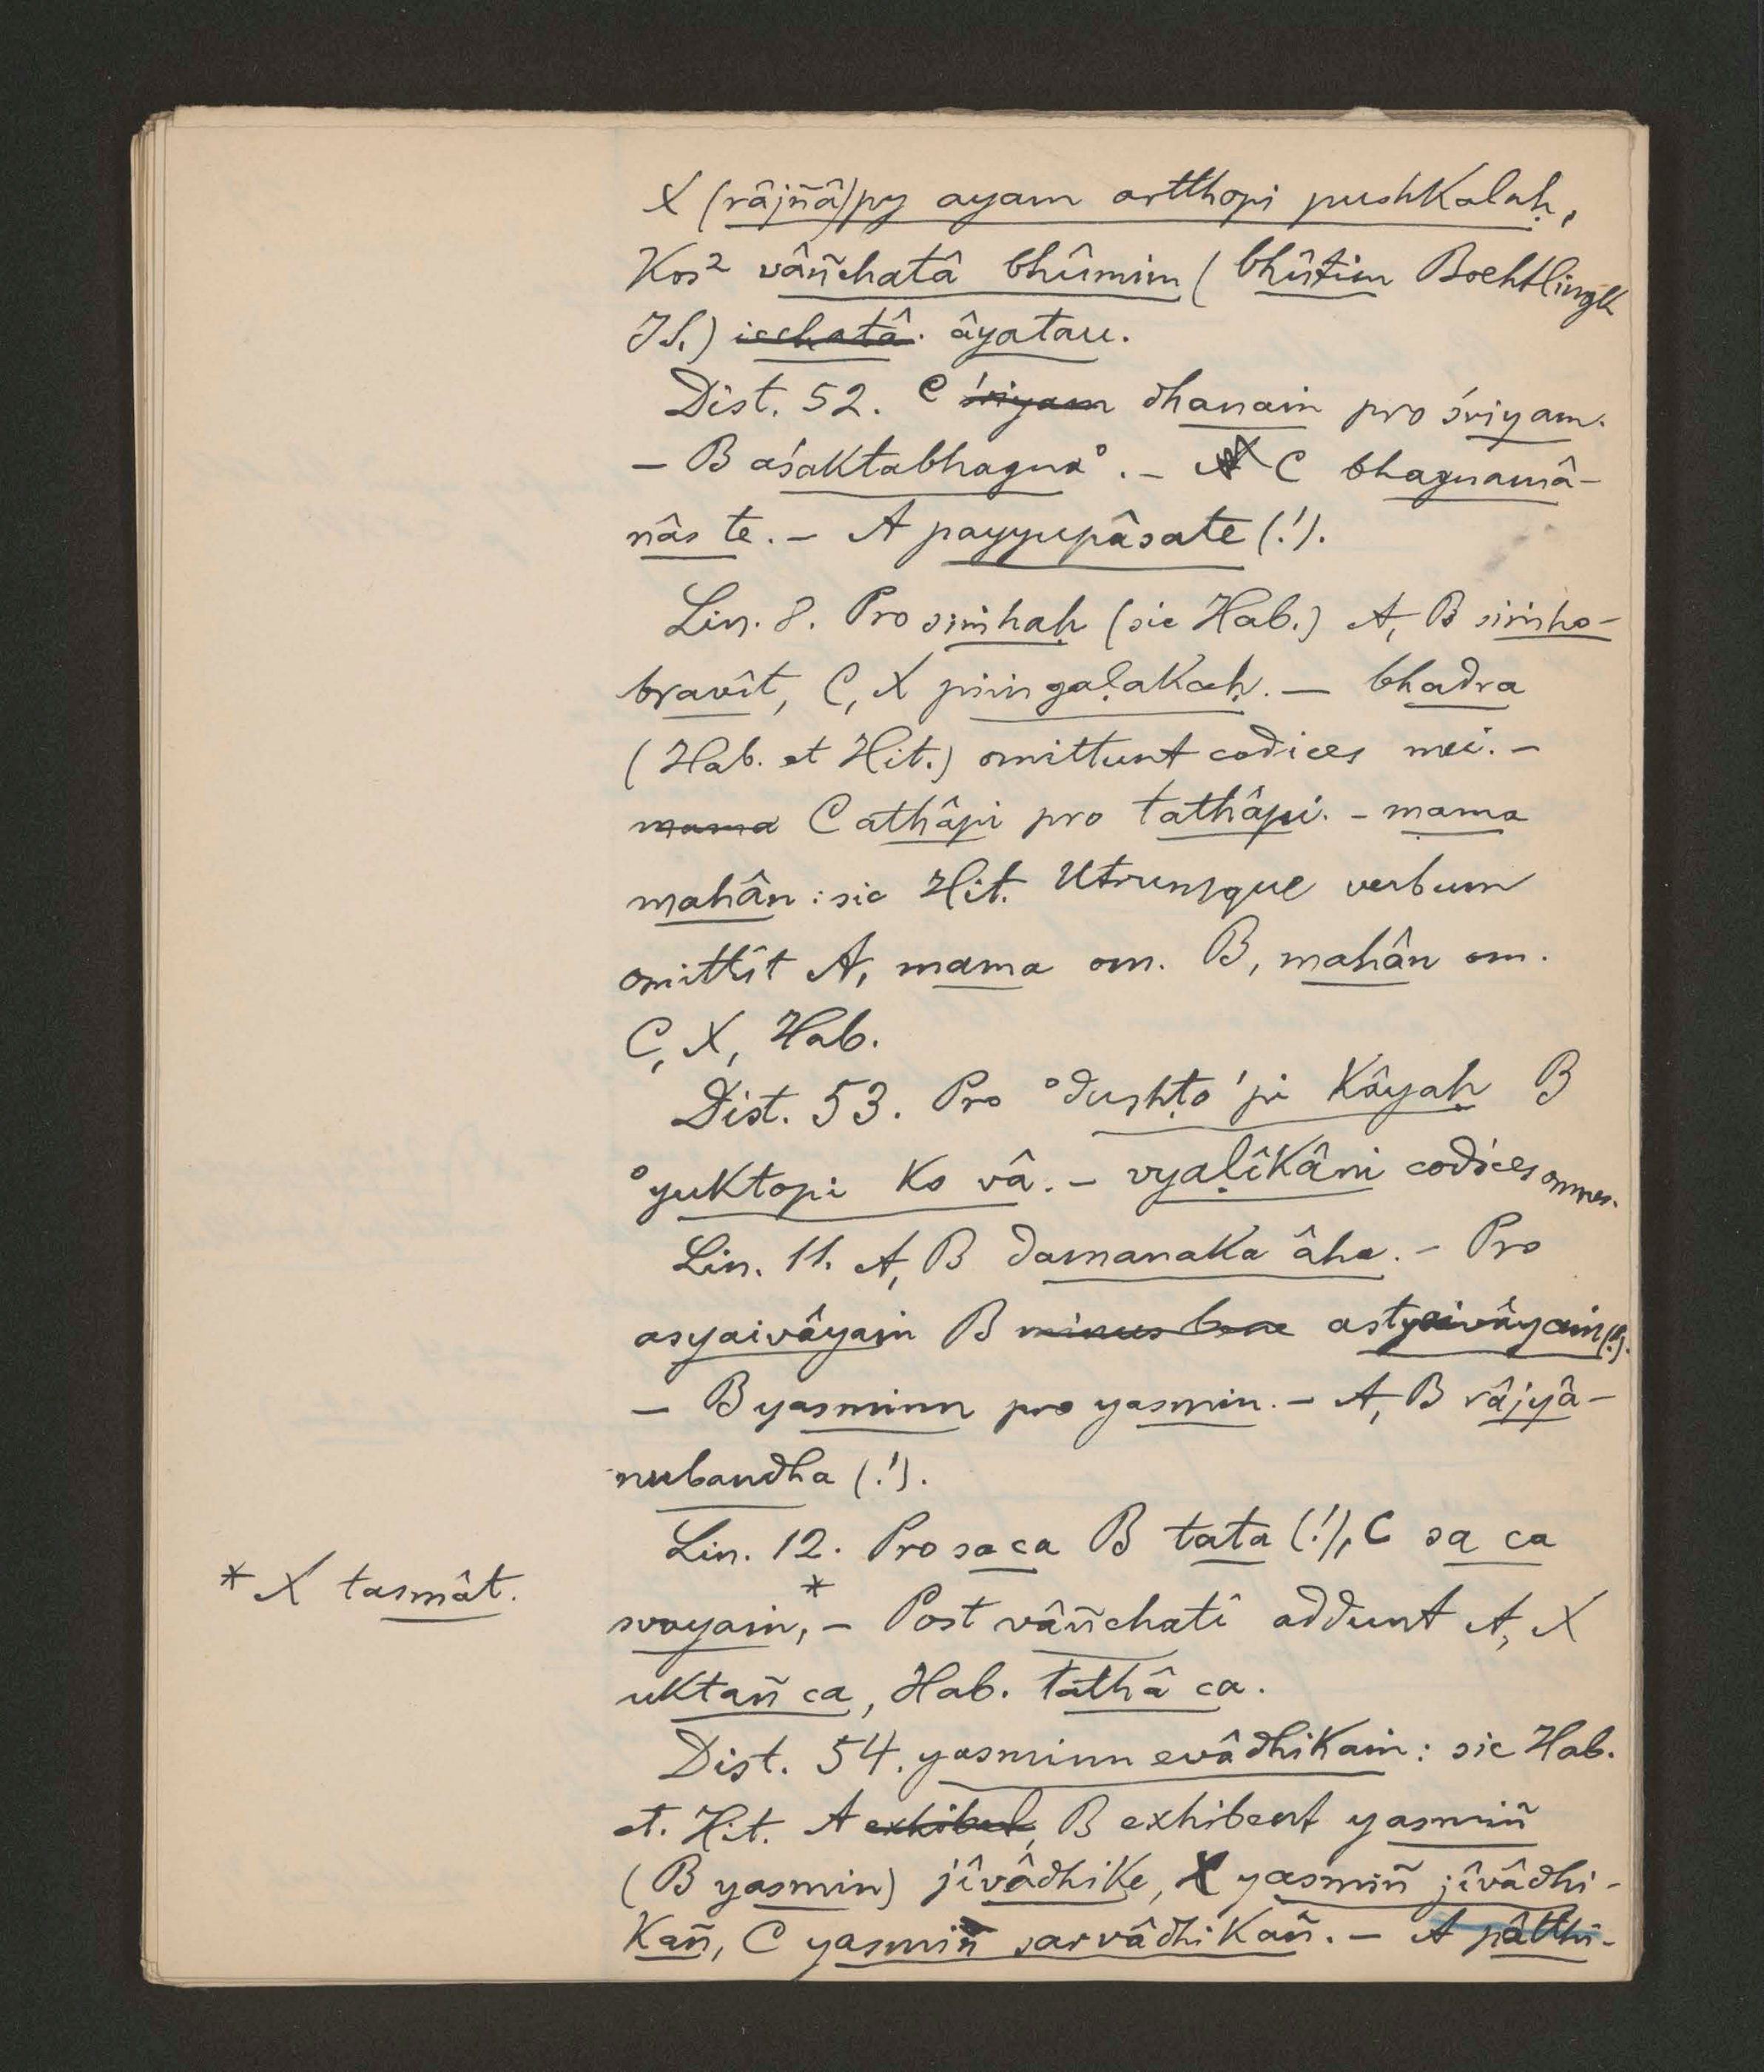 X (râjñâ)py ayam artthopi pushkalaḥ,
Kos² vâñchatâ bhûmim (bhûtim Boehtlingk
IS.) icchatâ. âyatau.
Dist. 52. C śriyam dhanaṁ pro śriyam.
– B aśaktabhagna°. – C bhagnamâ-
nâs te. – A payyupâsate (!).
Lin. 8. Pro siṁhaḥ (sic Hab.) A, B siṁho-
bravît, C, X piṁgaḷakaḥ. – bhadra
(Hab. et Hit.) omittunt codices mei. –
mama C athâpi pro tathâpi. – mama
mahân : sic Hit. Utrumque verbum
omittit A, mama om. B, mahân om.
C, X, Hab.
Dist. 53. Pro °dushṭo 'pi kâyaḥ B
°yuktopi ko vâ. – vyaḷîkâni codices omnes.
Lin. 11. A, B damanaka âha. – Pro
asyaivâyaṁ B minus bene astyaivâyaṁ (!).
– B yasminn pro yasmin. – A, B râjyâ-
nubandha (!).
Lin. 12. Pro sa ca B tata (!), C sa ca
* X tasmât.
svayaṁ,* – Post vâñchati addunt A, X
uktañ ca, Hab. tathâ ca.
Dist. 54. yasminn evâdhikaṁ : sic Hab.
et. Hit. A exhibet, B exhibent yasmiñ
(B yasmin) jîvâdhike, X yasmiñ jîvâdhi-
kañ, C yasmiñ sarvâdhikañ. – A pâtthi-